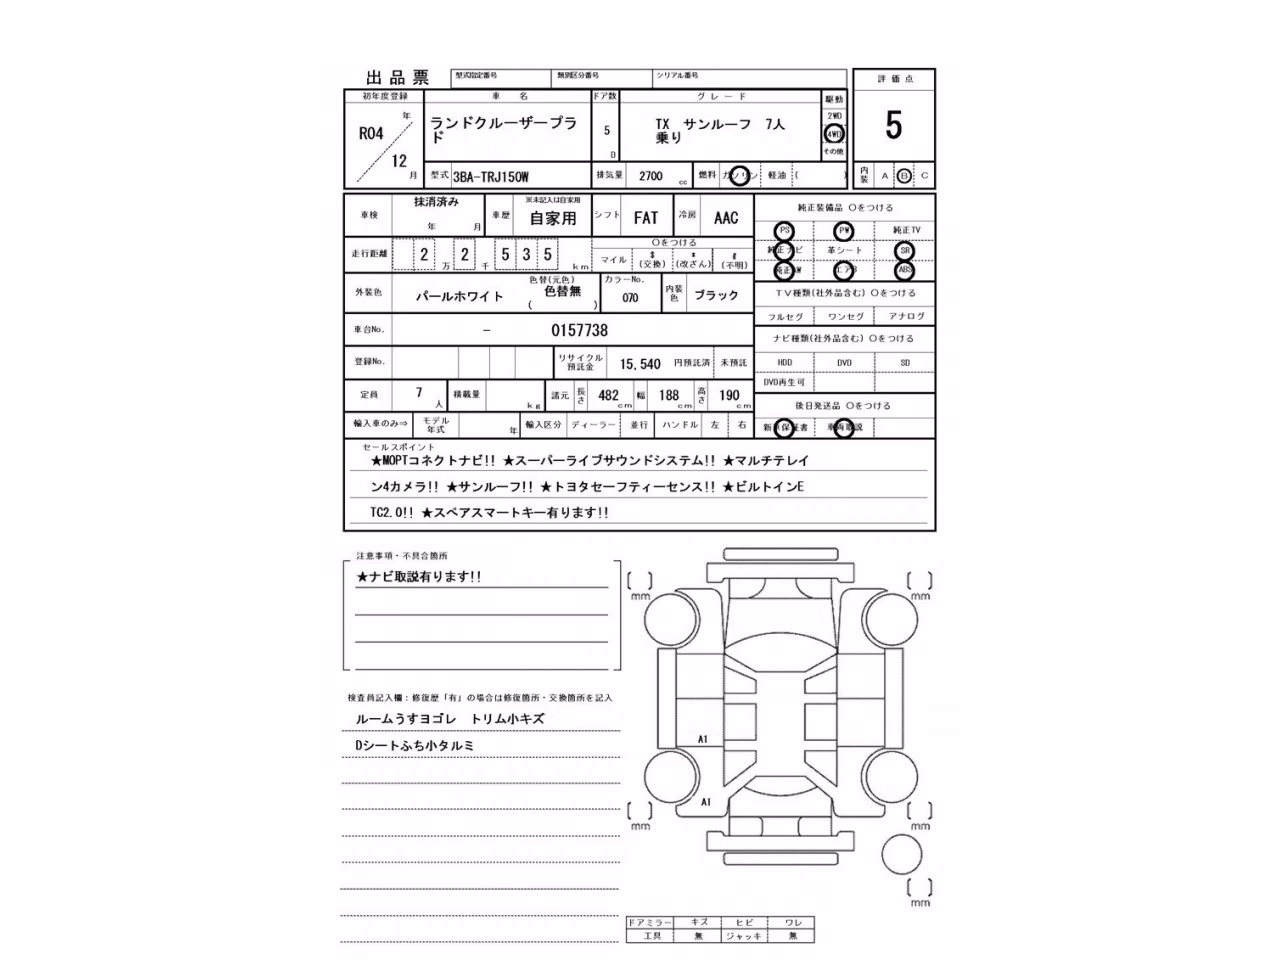 出品票
型式指定番号 類別区分番号 シリアル番号
評価点
5
内装 A B C
初年度登録 車名 ドア数 グレード 駆動
R04 年 12 月
ランドクルーザープラ
ド
5 D
TX サンルーフ 7人
乗り
2WD
4WD
その他
型式 3BA-TRJ150W 排気量 2700 cc 燃料 ガソリン 軽油 ( )
車検 抹消済み 年 月 車歴 ※未記入は自家用 自家用 シフト FAT 冷房 AAC
走行距離 2 万 2 千 5 3 5 km
○をつける
マイル $(交換) *(改ざん) #(不明)
外装色 パールホワイト 色替(元色) 色替無 ( ) カラーNo. 070 内装色 ブラック
車台No. - 0157738
登録No. リサイクル預託金 15,540 円預託済 未預託
定員 7 人 積載量 kg 諸元 長さ 482 cm 幅 188 cm 高さ 190 cm
輸入車のみ⇒ モデル年式 年 輸入区分 ディーラー 並行 ハンドル 左 右
純正装備品 ○をつける
PS PW 純正TV
純正ナビ 革シート SR
純正AW エアB ABS
TV種類(社外品含む) ○をつける
フルセグ ワンセグ アナログ
ナビ種類(社外品含む) ○をつける
HDD DVD SD
DVD再生可
後日発送品 ○をつける
新車保証書 車両取説
セールスポイント
★MOPTコネクトナビ!! ★スーパーライブサウンドシステム!! ★マルチテレイ
ン4カメラ!! ★サンルーフ!! ★トヨタセーフティーセンス!! ★ビルトインE
TC2.0!! ★スペアスマートキー有ります!!
注意事項・不具合箇所
★ナビ取説有ります!!
検査員記入欄：修復歴「有」の場合は修復箇所・交換箇所を記入
ルームうすヨゴレ トリム小キズ
Dシートふち小タルミ
mm mm
A1
A1
mm mm
mm
ドアミラー キズ ヒビ ワレ
工具 無 ジャッキ 無